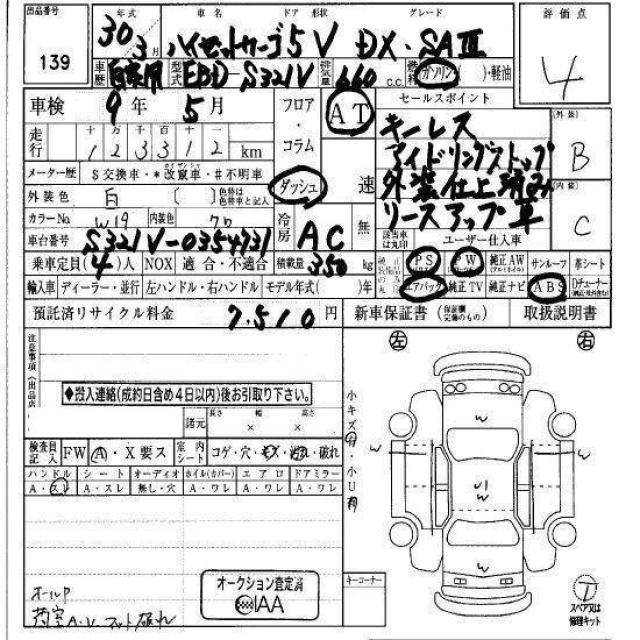 出品番号 139
年式 車名 ドア 形状 グレード
30年3月 ハイゼットカーゴ 5 V DX・SAⅢ
評価点 4
車歴 自家用 型式 EBD S321V 排気量 660 c.c. 燃料 ガソリン・( )・軽油
車検 9年 5月 フロア・コラム ダッシュ AT 速
セールスポイント
キーレス
アイドリングストップ
外装仕上済み
リースアップ車
外装 B
内装 C
走行 十 万 千 百 十 一
123312 km
メーター歴 $交換車・*改竄車・#不明車
外装色 白 ( ) 色替は色替車と記入
カラーNo. W19 内装色 グレ
冷房 AC 無
車台番号 S321V-0354731
該当車は丸印 ユーザー仕入車
乗車定員(4)人 NOX 適合・不適合 積載量 350 kg
PS PW 純正AW サンルーフ 革シート
輸入車 ディーラー・並行 左ハンドル・右ハンドル モデル年式( )年
エアバック 純正TV 純正ナビ ABS Dチューナー
預託済リサイクル料金 7,510円 新車保証書 (保証欄完備のもの) 取扱説明書
注意事項(出品店)
◆搬入連絡(成約日含め4日以内)後お引取り下さい。
諸元 長さ × 幅 × 高さ
検査員記入 FW A・X要ス 室内シート コゲ・穴・キズ・汚れ・破れ
ハンドル シート オーディオ ホイル(カバー) エアロ ドアミラー
A・スレ A・スレ 無し・穴 A・ワレ A・ワレ A・ワレ
小キズ有・小U有
左 右
W
W W
U1
W
W
オールP
荷室A.V マット破れ
オークション査定済
IAA
キーコーナー
T
スペア又は修理キット